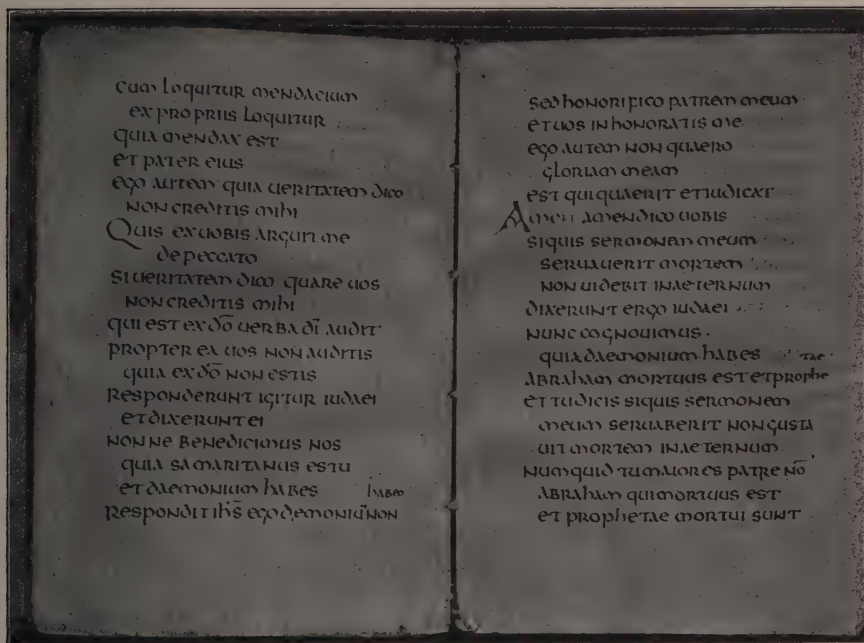 cum loquitur mendacium
ex propriis loquitur
quia mendax est
et pater eius
ego autem quia ueritatem dico
non creditis mihi
Quis ex uobis arguit me
de peccato
si ueritatem dico quare uos
non creditis mihi
qui est ex d̄o uerba d̄i audit
propter ea uos non auditis
quia ex d̄o non estis
responderunt igitur iudaei
et dixerunt ei
non ne benedicimus nos
quia samaritanus es tu
et daemonium habes habeo
respondit ih̄s ego demoniū non
sed honorifico patrem meum
et uos inhonoratis me
ego autem non quaero
gloriam meam
est qui quaerit et iudicat
Amen amen dico uobis
siquis sermonem meum
seruauerit mortem
non uidebit in aeternum
dixerunt ergo iudaei
nunc cognouimus
quia daemonium habes tae
abraham mortuus est et prophe
et tu dicis siquis sermonem
meum seruaberit non gusta
uit mortem in aeternum
numquid tu maior es patre nō
abraham qui mortuus est
et prophetae mortui sunt